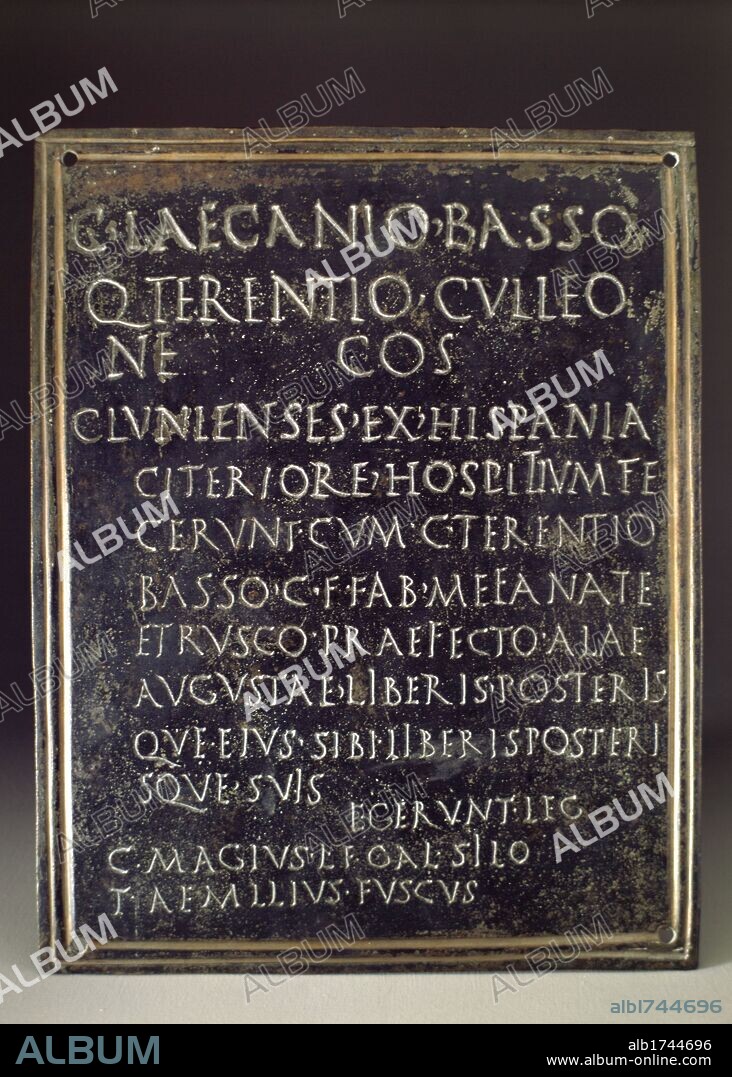 C·LAECANIO·BASSO
Q·TERENTIO·CVLLEO
NE COS
CLVNIENSES·EX·HISPANIA
CITERIORE·HOSPITIVM FE
CERVNT·CVM·C·TERENTIO
BASSO·C·F·FAB·MEFANATE
ETRVSCO·PRAEFECTO·ALAE
AVGVSTAE·LIBERIS·POSTERIS
QVE·EIVS·SIBI·LIBERIS·POSTERI
SQVE·SVIS
EGERVNT·LEG
C·MAGIVS·L·F·GAL·SILO
T·AEMILIVS·FVSCVS
ALBUM
alb1744696
ALBUM
alb1744696
www.album-online.com